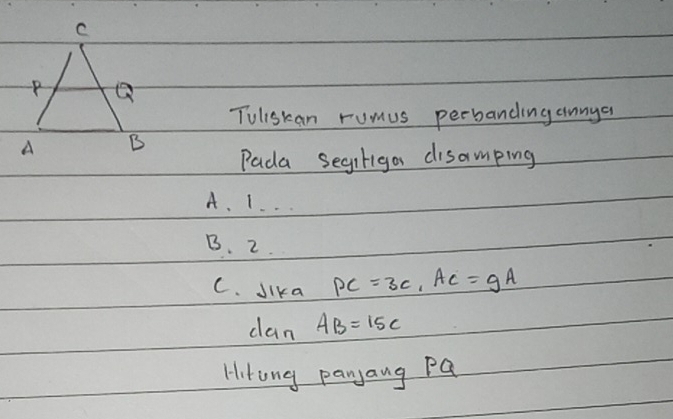 C
P Q
A B
Tuliskan rumus perbandingannya
Pada segitiga disamping
A. 1...
B. 2..
C. Jika PC = 3c, AC = 9A
dan AB = 15c
Hitung panjang PQ